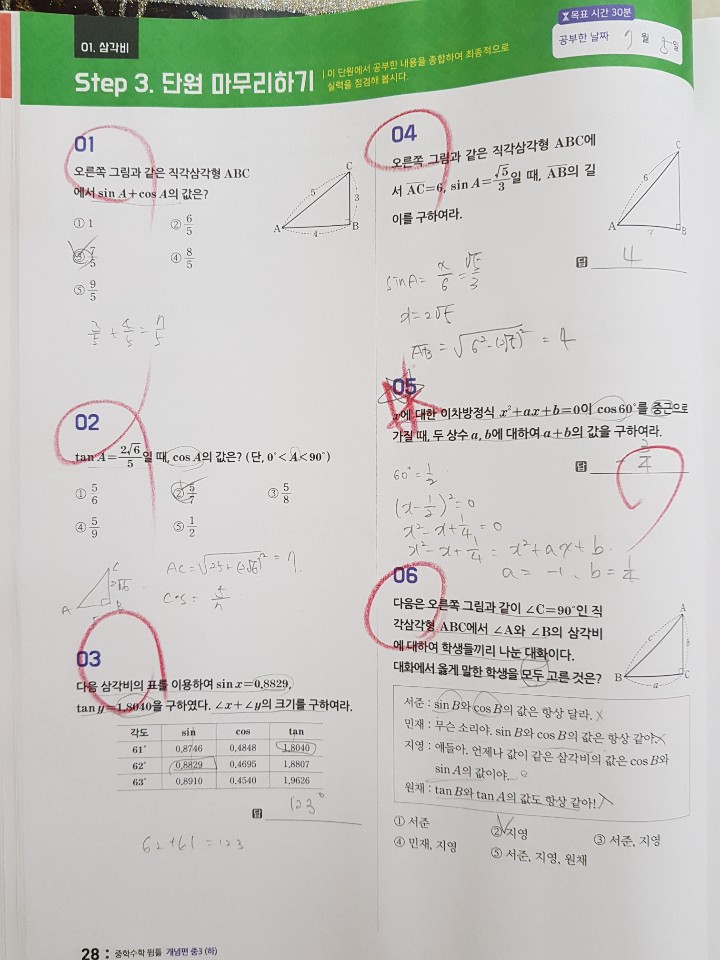 01. 삼각비
Step 3. 단원 마무리하기
이 단원에서 공부한 내용을 종합하여 최종적으로
실력을 점검해 봅시다.
목표 시간 30분
공부한 날짜 9월 5일
01
오른쪽 그림과 같은 직각삼각형 ABC
에서 sin A+cos A의 값은?
① 1 ② 6/5
③ 7/5 ④ 8/5
⑤ 9/5
C
5
3
A
4
B
3/5 + 4/5 = 7/5
02
tan A=2√6/5일 때, cos A의 값은? (단, 0°<A<90°)
① 5/6 ② 5/7 ③ 5/8
④ 5/9 ⑤ 1/2
C
2√6
A
B
AC = √25+(2√6)² = 7
cos =
03
다음 삼각비의 표를 이용하여 sin x=0.8829,
tan y=1.8040을 구하였다. ∠x+∠y의 크기를 구하여라.
각도 sin cos tan
61° 0.8746 0.4848 1.8040
62° 0.8829 0.4695 1.8807
63° 0.8910 0.4540 1.9626
답 123°
62+61=123
04
오른쪽 그림과 같은 직각삼각형 ABC에
서 AC=6, sin A=√5/3일 때, AB의 길
이를 구하여라.
C
6
A
B
답 4
sin A = x/6 = √5/3
x=2√5
AB = √6²-(2√5)² = 4
05
x에 대한 이차방정식 x²+ax+b=0이 cos 60°를 중근으로
가질 때, 두 상수 a, b에 대하여 a+b의 값을 구하여라.
답 -3/4
60° = 1/2
(x-1/2)²=0
x²-x+1/4=0
x²-x+1/4 = x²+ax+b.
a = -1, b = 1/4
06
다음은 오른쪽 그림과 같이 ∠C=90°인 직
각삼각형 ABC에서 ∠A와 ∠B의 삼각비
에 대하여 학생들끼리 나눈 대화이다.
대화에서 옳게 말한 학생을 모두 고른 것은?
A
c
b
B
a
C
서준 : sin B와 cos B의 값은 항상 달라.
민재 : 무슨 소리야. sin B와 cos B의 값은 항상 같아.
지영 : 얘들아. 언제나 값이 같은 삼각비의 값은 cos B와
sin A의 값이야.
원채 : tan B와 tan A의 값도 항상 같아!
① 서준 ② 지영 ③ 서준, 지영
④ 민재, 지영 ⑤ 서준, 지영, 원채
28 : 중학수학 뜀틀 개념편 중3 (하)